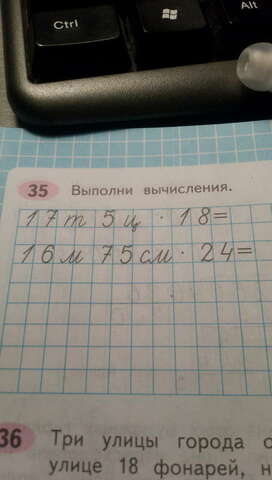 Ctrl
Alt
35 Выполни вычисления.
17т 5ц · 18=
16м 75см · 24=
36 Три улицы города
улице 18 фонарей,